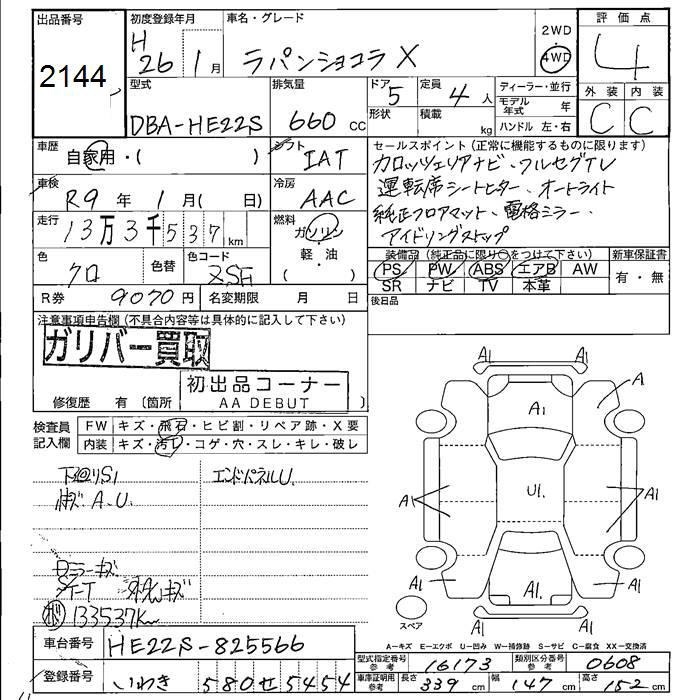 出品番号
2144
初度登録年月
H
26 1月
車名・グレード
ラパンショコラ X
2WD
4WD
評価点
4
外装 内装
C C
型式
DBA-HE22S
排気量
660 cc
ドア
5
形状
定員
4人
積載
kg
ディーラー・並行
モデル年式 年
ハンドル 左・右
車歴
自家用・( )
シフト
IAT
車検
R9年 1月( 日)
冷房
AAC
走行
13万3千537km
燃料
ガソリン
軽・油
( )
色
クロ
色替
色コード
R券 9070円
名変期限 月 日
セールスポイント(正常に機能するものに限ります)
カロッツェリアナビ・フルセグTV
運転席シートヒター、オートライト
純正フロアマット、電格ミラー、
アイドリングストップ
装備品(純正品に限り○をつけて下さい)
PS PW ABS エアB AW
SR ナビ TV 本革
新車保証書
有・無
後日品
注意事項申告欄(不具合内容等は具体的に記入して下さい)
ガリバー買取
初出品コーナー
AA DEBUT
修復歴 有(箇所
検査員記入欄
FW キズ・飛石・ヒビ割・リペア跡・X要
内装 キズ・汚れ・コゲ・穴・スレ・キレ・破レ
エンドパネルU.
A.U.
Dミラーキズ
133537Km
A1 A1
A
A1
A1 U1. A1
A1 A1. A1
A1 A1
スペア
A-キズ E-エクボ U-凹み W-補修跡 S-サビ C-腐食 XX-交換済
車台番号 HE22S-825566
登録番号 いわき 580 せ 5454
型式指定番号参考 16173
類別区分番号参考 0608
車庫証明用参考 長さ 339cm 幅 147cm 高さ 152cm